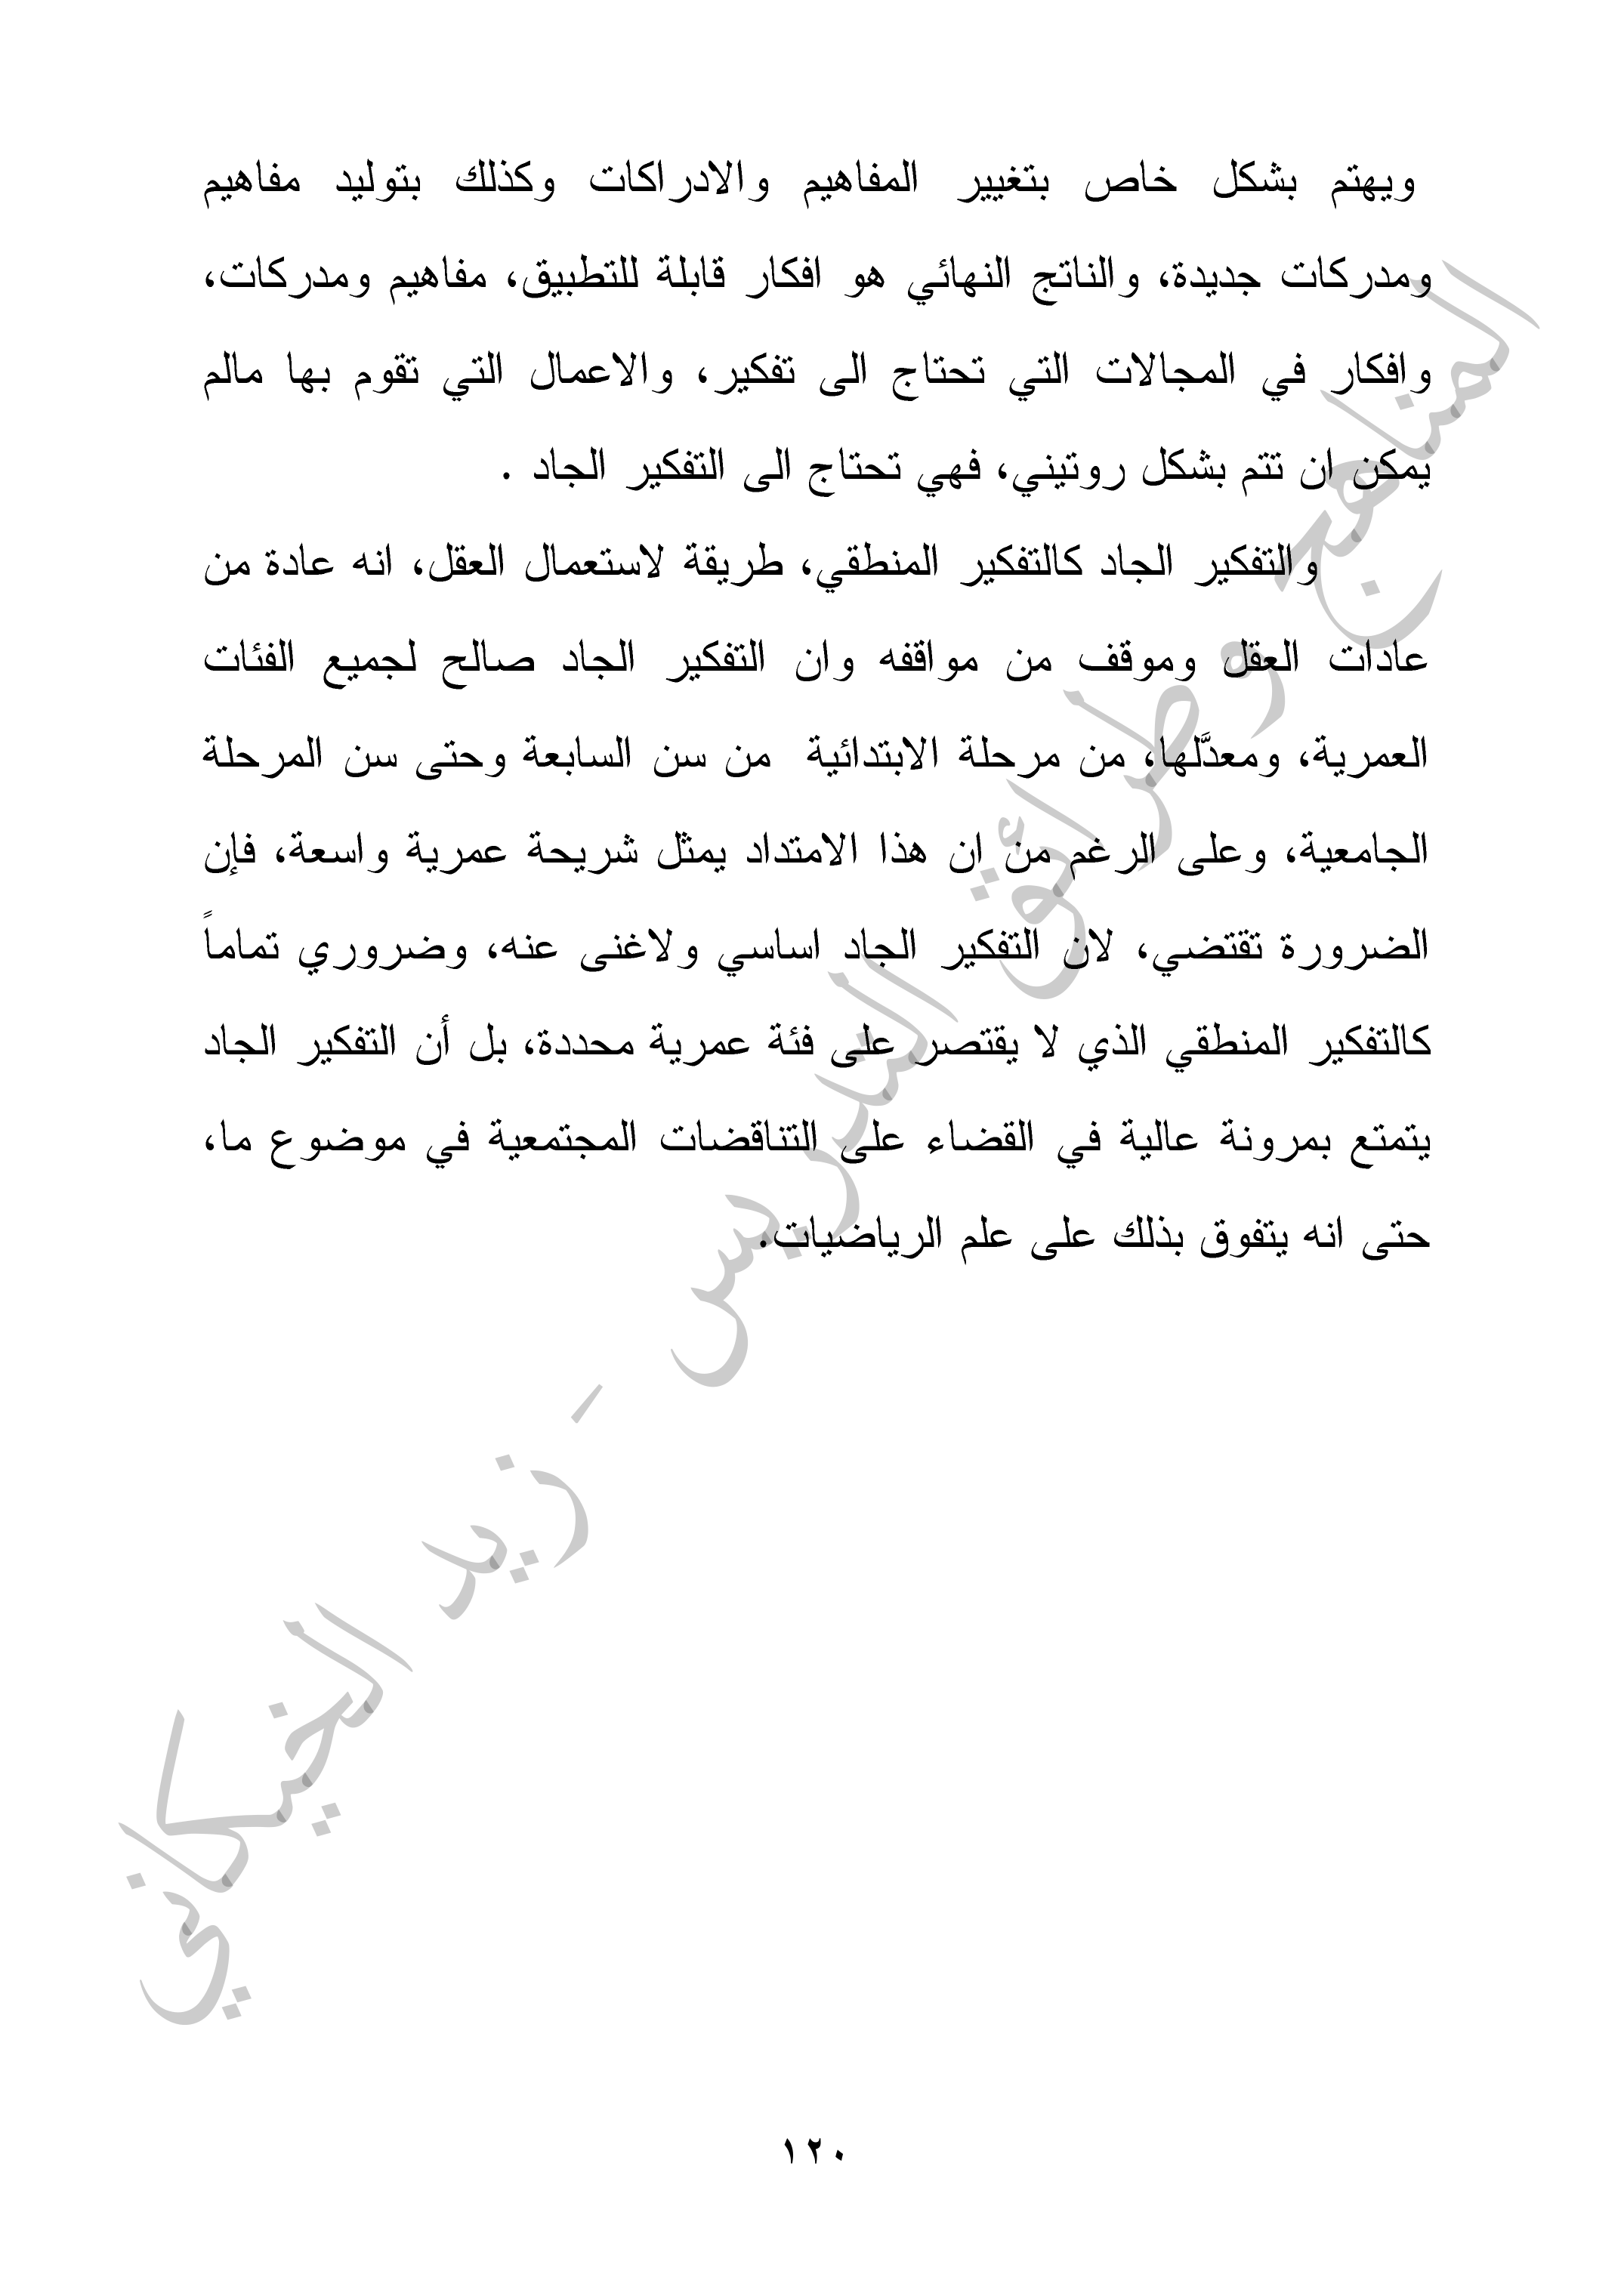 ويهتم بشكل خاص بتغيير المفاهيم والادراكات وكذلك بتوليد مفاهيم
ومدركات جديدة، والناتج النهائي هو افكار قابلة للتطبيق، مفاهيم ومدركات،
وافكار في المجالات التي تحتاج الى تفكير، والاعمال التي تقوم بها مالم
يمكن ان تتم بشكل روتيني، فهي تحتاج الى التفكير الجاد .
والتفكير الجاد كالتفكير المنطقي، طريقة لاستعمال العقل، انه عادة من
عادات العقل وموقف من مواقفه وان التفكير الجاد صالح لجميع الفئات
العمرية، ومعدَّلها، من مرحلة الابتدائية من سن السابعة وحتى سن المرحلة
الجامعية، وعلى الرغم من ان هذا الامتداد يمثل شريحة عمرية واسعة، فإن
الضرورة تقتضي، لان التفكير الجاد اساسي ولاغنى عنه، وضروري تماماً
كالتفكير المنطقي الذي لا يقتصر على فئة عمرية محددة، بل أن التفكير الجاد
يتمتع بمرونة عالية في القضاء على التناقضات المجتمعية في موضوع ما،
حتى انه يتفوق بذلك على علم الرياضيات.
المناهج وطرائق التدريس - زيد الخيكاني
١٢٠